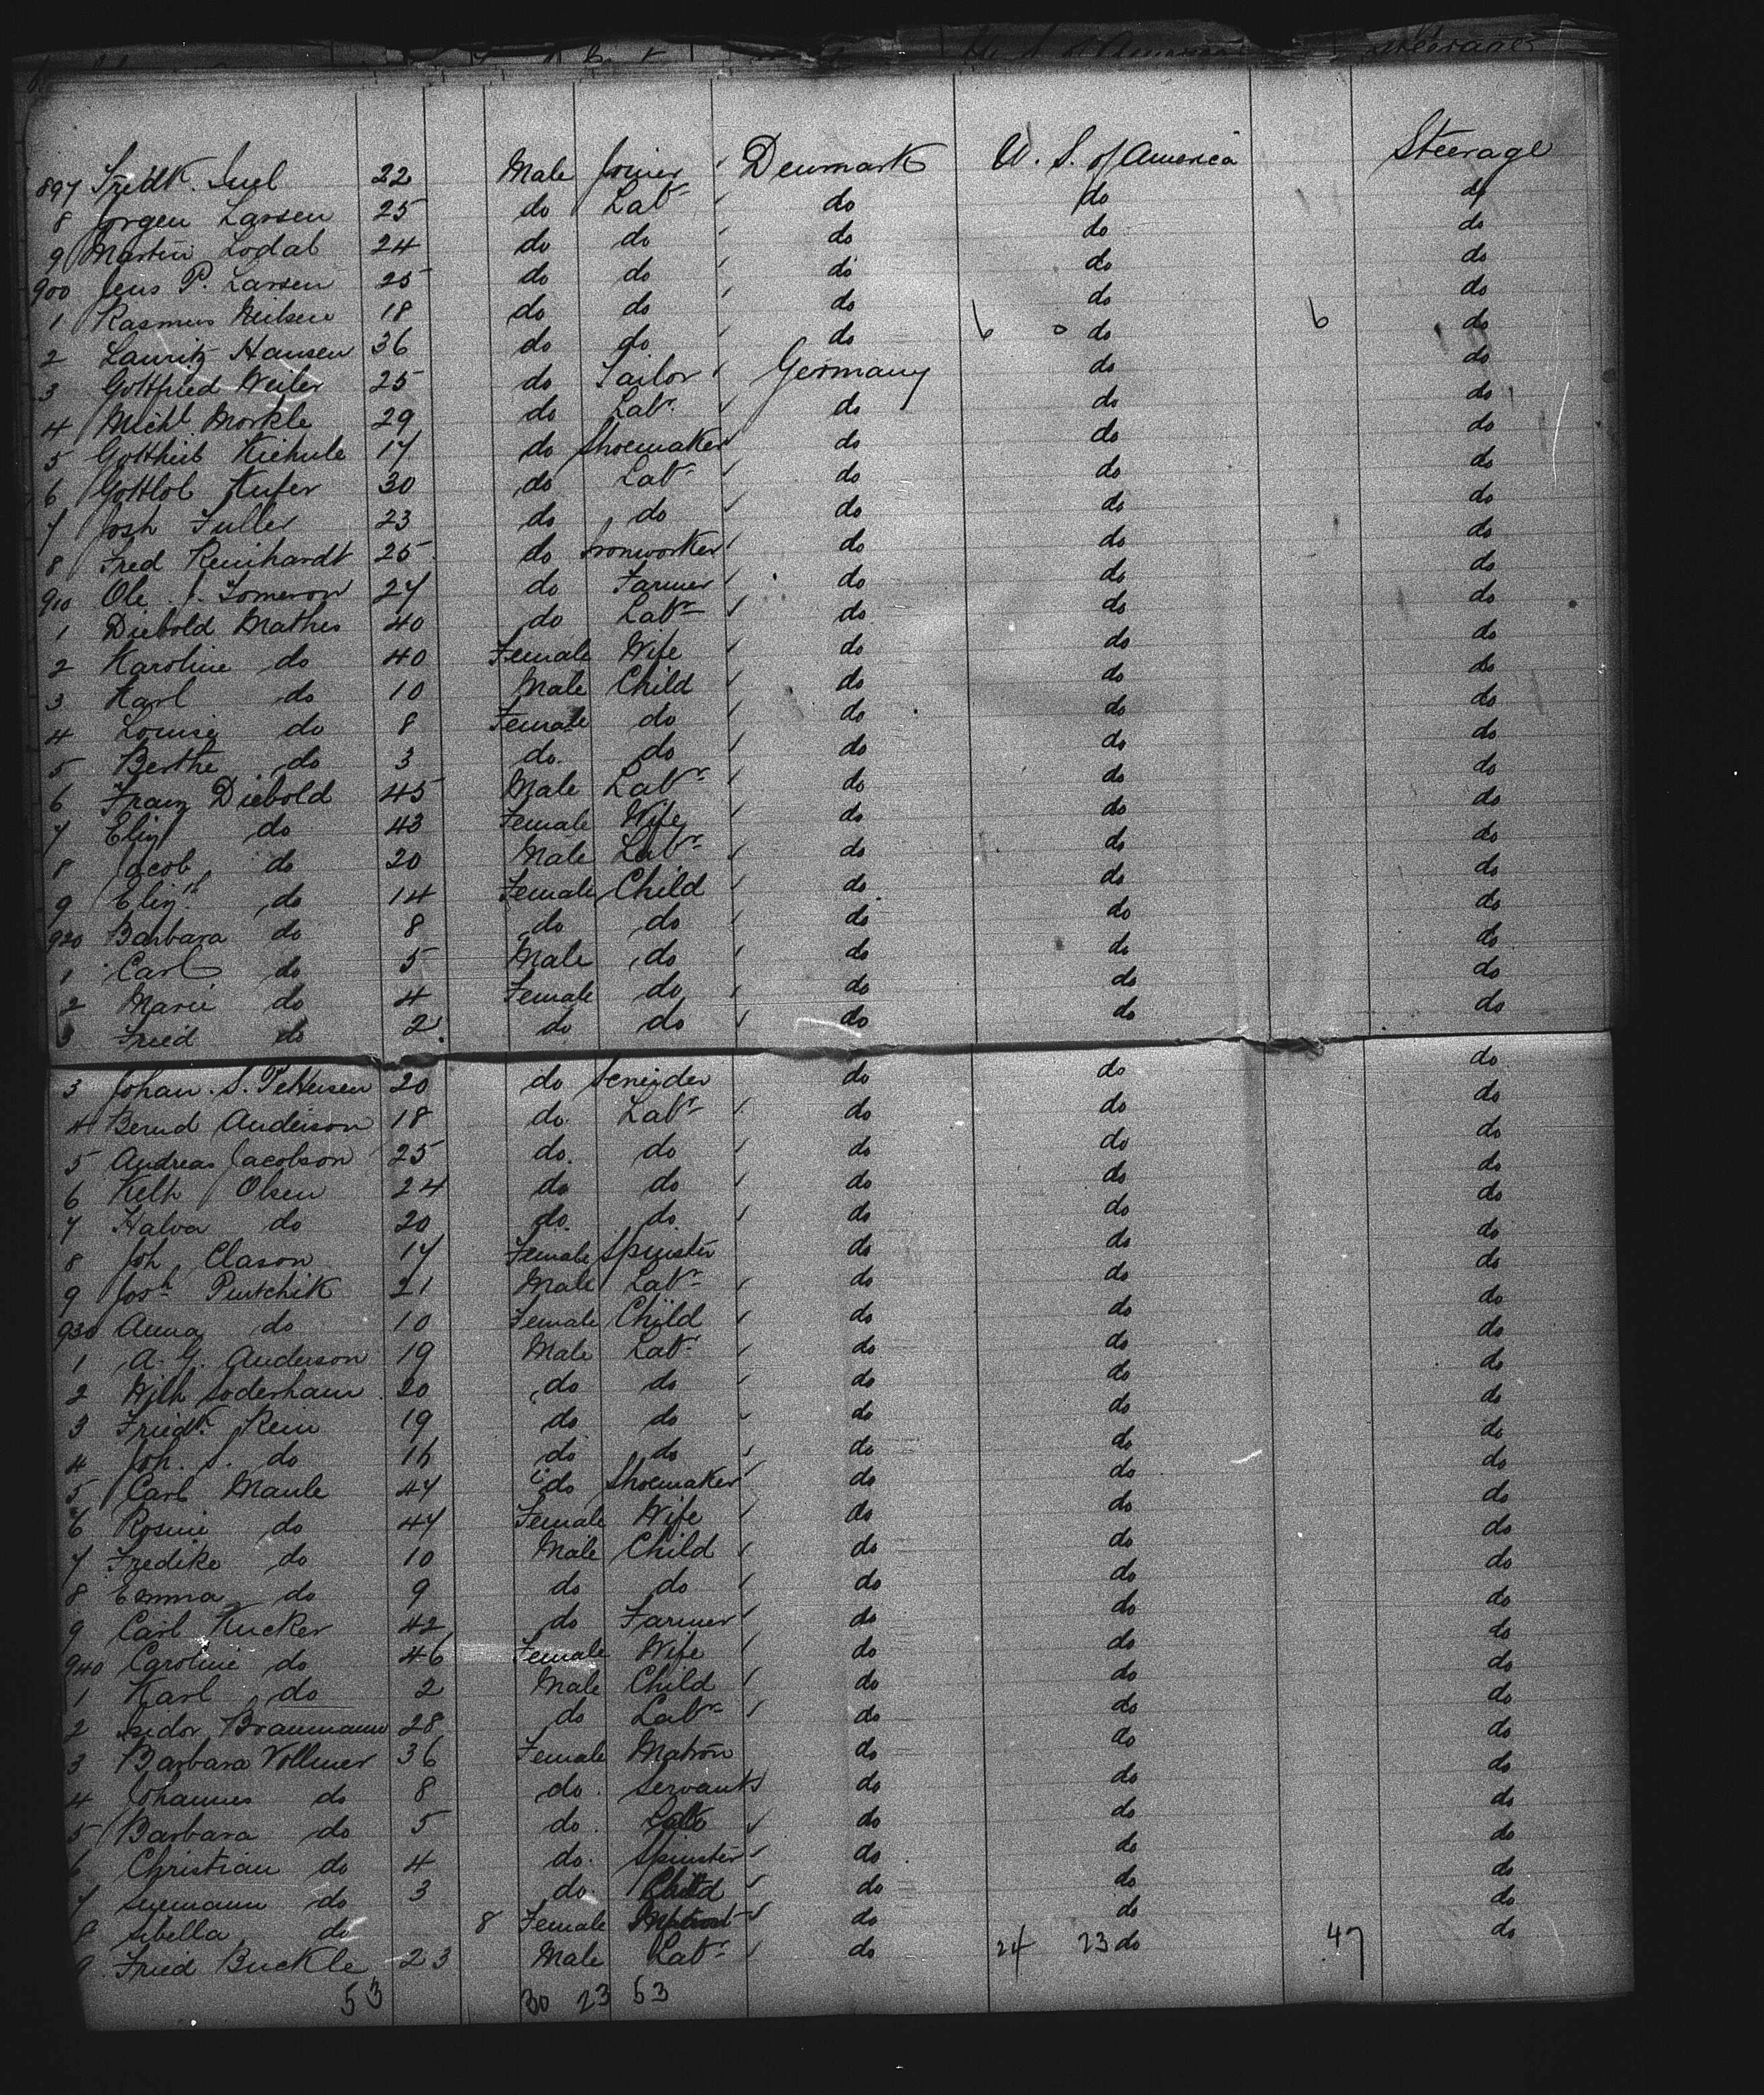 897 Fredk. Juel 22 Male Joiner Denmark U. S. of America Steerage
8 Jorgen Larsen 25 do Labr do do do
9 Martin Lodal 24 do do do do do
900 Jens P. Larsen 25 do do do do do
1 Rasmus Neilsen 18 do do do do do
2 Lauritz Hansen 36 do do do 6 do 6 do
3 Gottfried Weiler 25 do Tailor Germany do do
4 Michl Morkle 29 do Labr do do do
5 Gottheib Kiehule 17 do Shoemaker do do do
6 Gottlob Kufer 30 do Labr do do do
7 Josh Fuller 23 do do do do do
8 Fred Reinhardt 25 do Ironworker do do do
910 Ole J. Tomeron 27 do Farmer do do do
1 Diebold Mathis 40 do Labr do do do
2 Karoline do 40 Female Wife do do do
3 Karl do 10 Male Child do do do
4 Louise do 8 Female do do do do
5 Berthe do 3 do. do do do do
6 Franz Diebold 45 Male Labr do do do
7 Eliz do 43 Female Wife do do do
8 Jacob do 20 Male Labr do do do
9 Elizth do 14 Female Child do do do
920 Barbara do 8 do do do do do
1 Carl do 5 Male do do do do
2 Marie do 4 Female do do do do
3 Fried do 2 do do do do do
3 Johan. S. Pettersen 20 do Scneider do do do
4 Bernd Anderson 18 do. Labr do do do
5 Andreas Jacobson 25 do. do do do do
6 Keth Olsen 24 do do do do do
7 Halva do 20 do. do. do do do
8 Joh Clason 17 Female Spinster do do do
9 Josh Putchik 21 Male Labr do do do
930 Anna do 10 Female Child do do do
1 A. G. Anderson 19 Male Labr do do do
2 Wilh Soderham 20 do do do do do
3 Friedk. Rein 19 do do do do do
4 Joh. S. do 16 do do do do do
5 Carl Maule 47 do Shoemaker do do do
6 Rosine do 47 Female Wife do do do
7 Fredike do 10 Male Child do do do
8 Emma do 9 do do do do do
9 Carl Kucker 42 do Farmer do do do
940 Caroline do 46 Female Wife do do do
1 Karl do 2 Male Child do do do
2 Isidor Braumann 28 do Labr do do do
3 Barbara Vollmer 36 Female Matron do do do
4 Johannes do 8 do. Servants do do do
5 Barbara do 5 do. do do do
6 Christian do 4 do. Spinster do do do
7 do 3 do Child do do do
8 Sibella do 8 Female do do do
9 Fried Buckle 23 Male Labr do 24 23 do 47 do
53 30 23 53